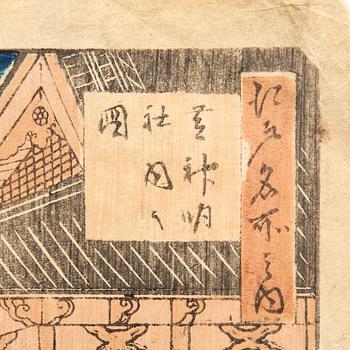 江戸名所之内
芝神明
社内之
圖